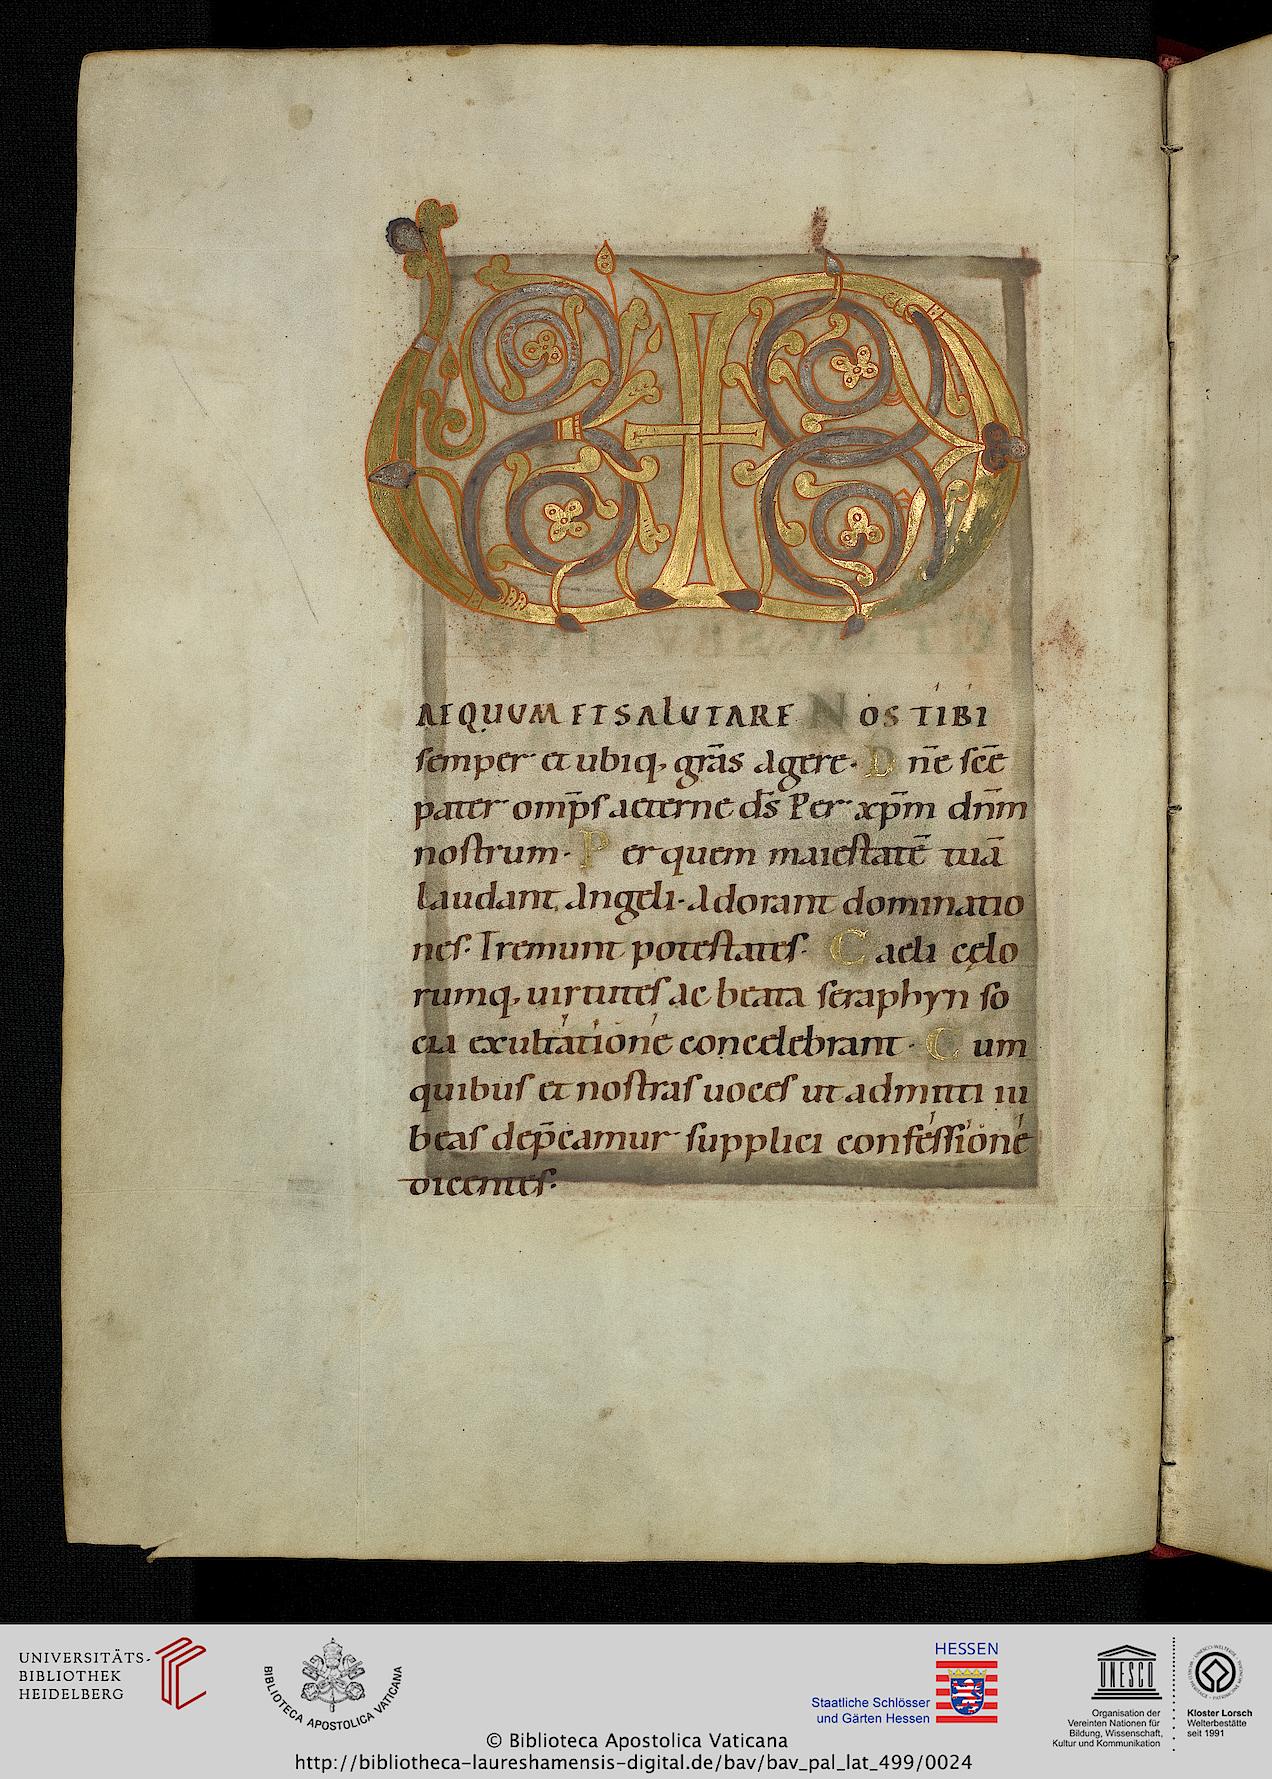 AEQUUM ET SALUTARE NOS TIBI
semper et ubiq, grās agere. Dn̄e sc̄e
pater omp̄s aeterne d̄s Per xp̄m dn̄m
nostrum. Per quem maiestatē tuā
laudant Angeli. Adorant dominatio
nes. Tremunt potestates. Caeli cęlo
rumq, uirtutes ac beata seraphyn so
cia exultatione concelebrant. Cum
quibus et nostras uoces ut admitti iu
beas dep̄camur supplici confessione
dicentes.
UNIVERSITÄTS-
BIBLIOTHEK
HEIDELBERG
BIBLIOTECA APOSTOLICA VATICANA
HESSEN
Staatliche Schlösser
und Gärten Hessen
UNESCO
Organisation der
Vereinten Nationen für
Bildung, Wissenschaft,
Kultur und Kommunikation
Kloster Lorsch
Welterbestätte
seit 1991
© Biblioteca Apostolica Vaticana
http://bibliotheca-laureshamensis-digital.de/bav/bav_pal_lat_499/0024